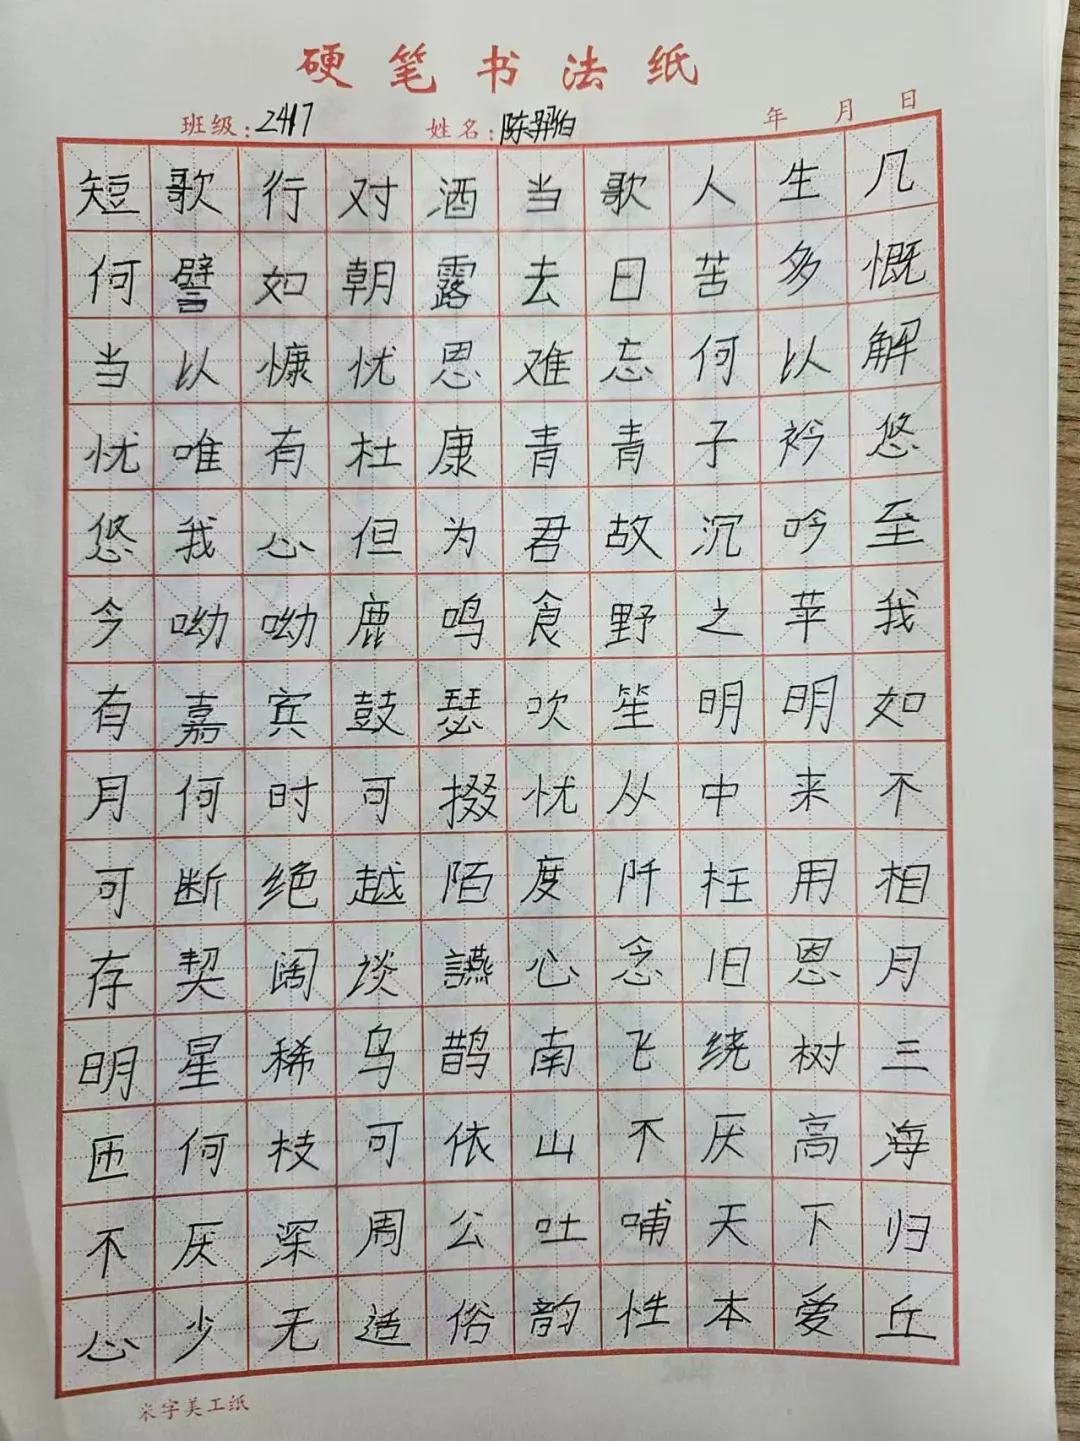 硬笔书法纸
班级：2417 姓名：陈羿伯 年 月 日
短歌行对酒当歌人生几
何譬如朝露去日苦多慨
当以慷忧思难忘何以解
忧唯有杜康青青子衿悠
悠我心但为君故沉吟至
今呦呦鹿鸣食野之苹我
有嘉宾鼓瑟吹笙明明如
月何时可掇忧从中来不
可断绝越陌度阡枉用相
存契阔谈讌心念旧恩月
明星稀乌鹊南飞绕树三
匝何枝可依山不厌高海
不厌深周公吐哺天下归
心少无适俗韵性本爱丘
米字美工纸